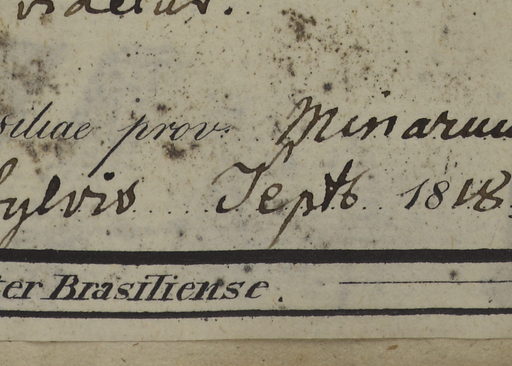 videtur.
siliae prov. Minarum
Sylvis Septb 1818.
ter Brasiliense.